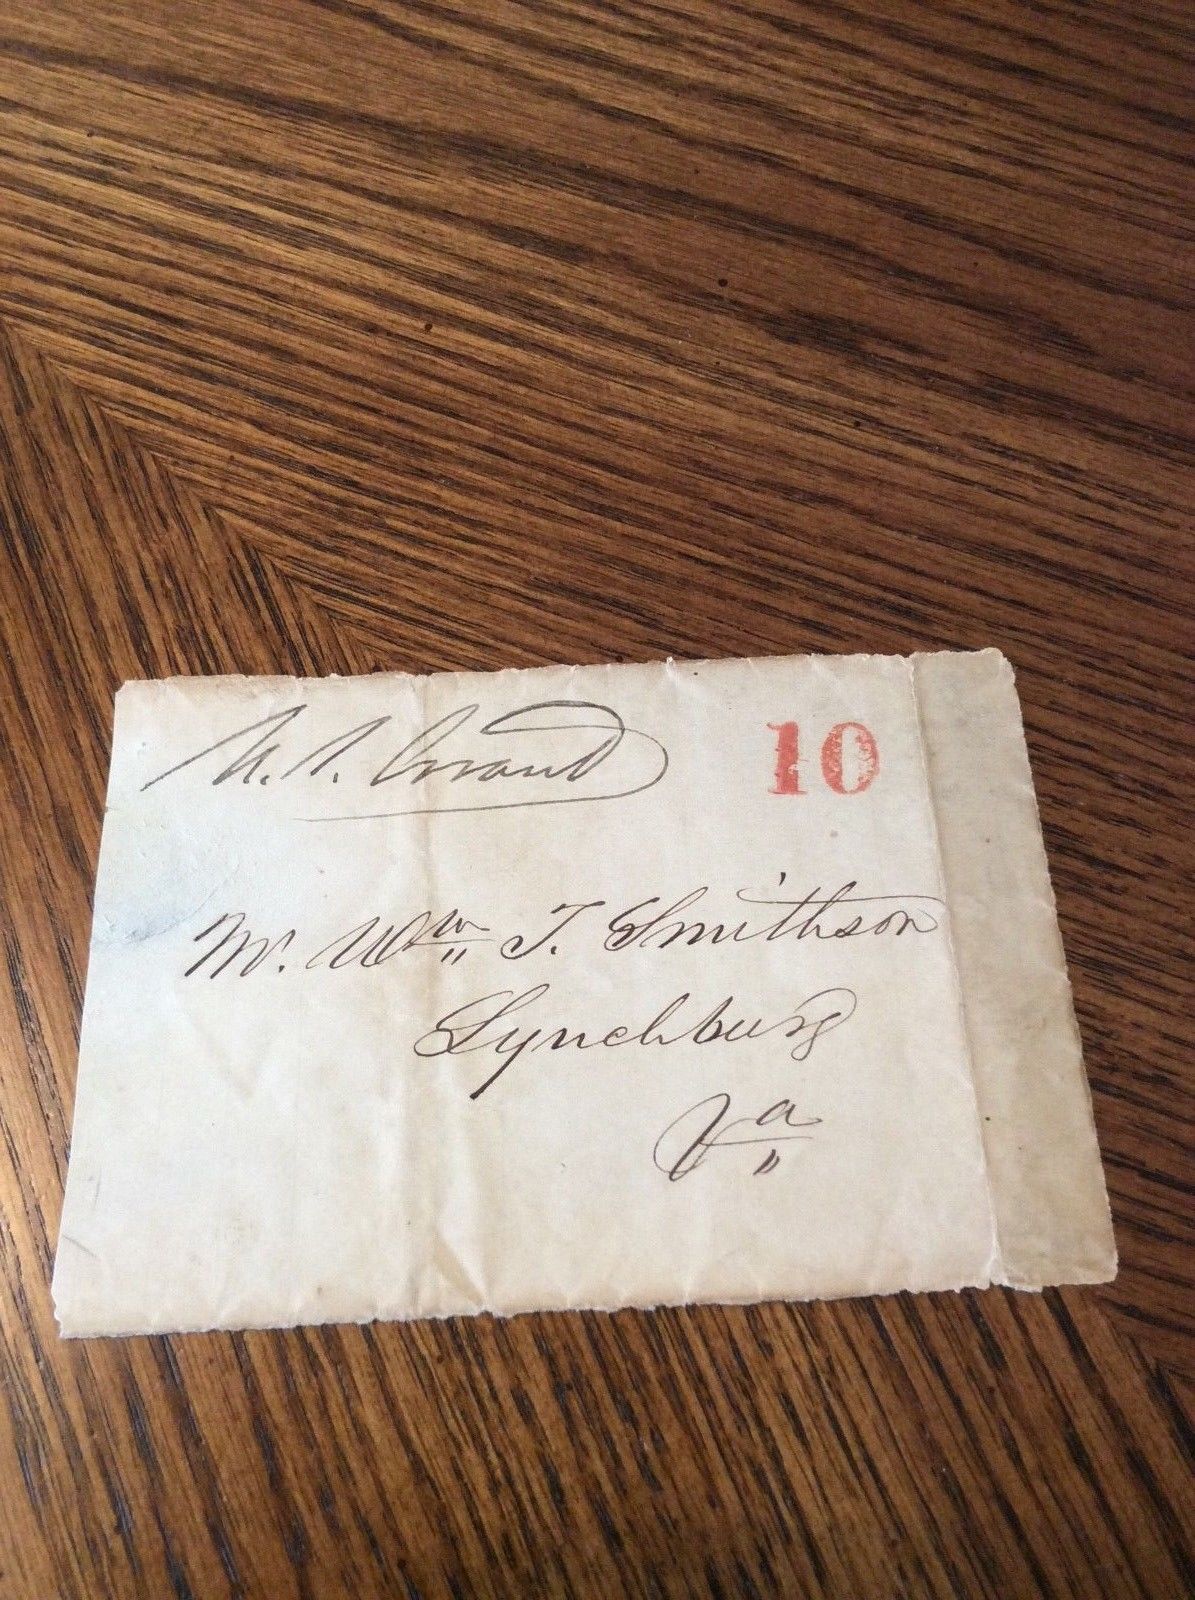 10
Mr. Wm T. Smithson
Lynchburg
Va